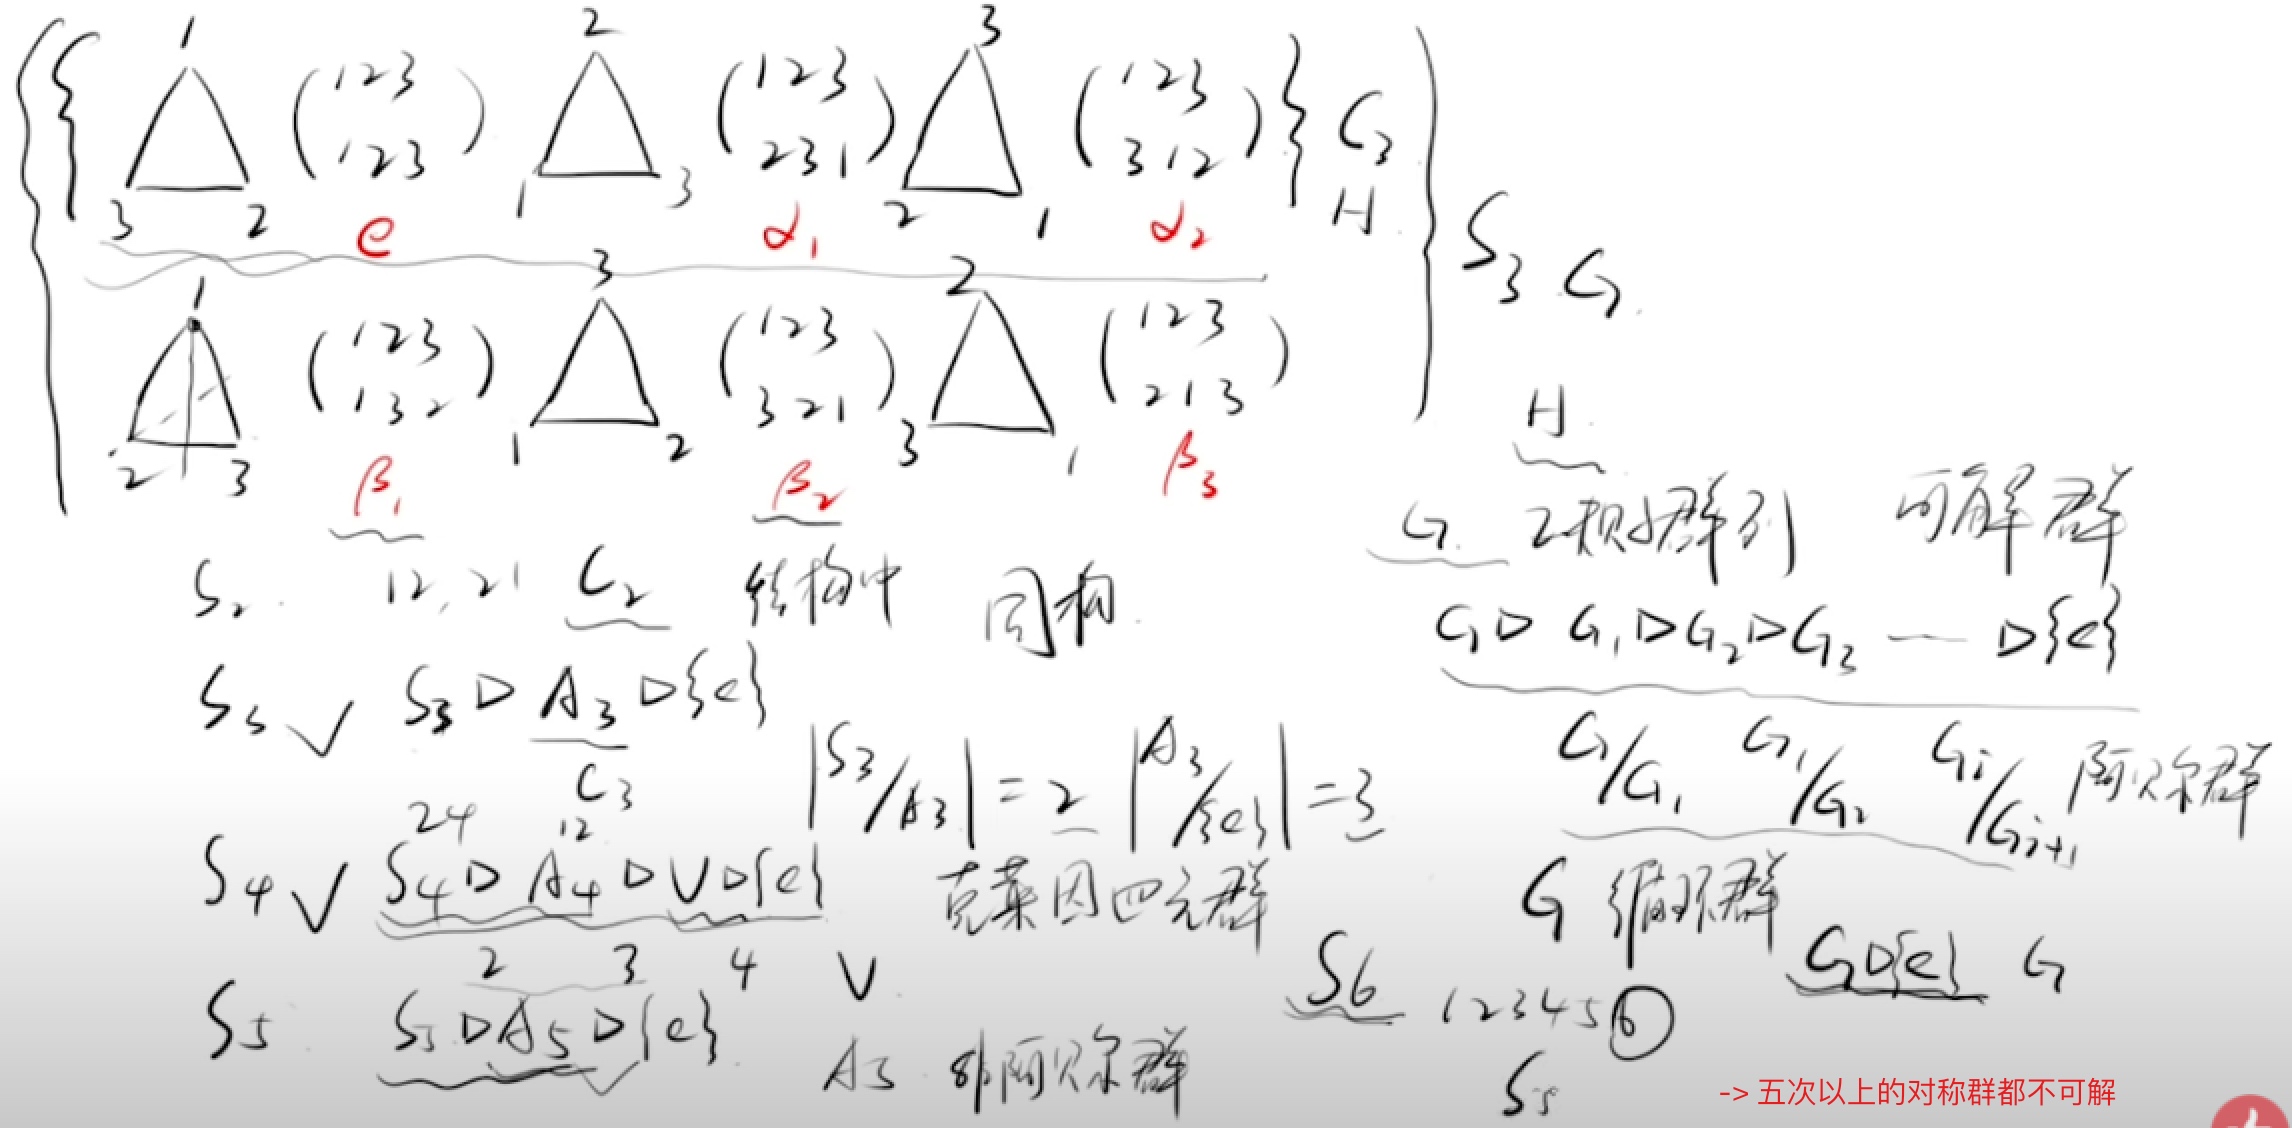 1 2 3
(1 2 3 / 1 2 3) (1 2 3 / 2 3 1) (1 2 3 / 3 1 2) } C₃
3 2 1 3 2 1 H
e α₁ α₂
S₃ G
1 3 2
(1 2 3 / 1 3 2) (1 2 3 / 3 2 1) (1 2 3 / 2 1 3)
2 3 1 2 3 1
β₁ β₂ β₃
H
G 正规子群列 可解群
S₂ 12, 21 C₂ 结构 同构
G ▷ G₁ ▷ G₂ ▷ G₃ — ▷ {e}
S₃ √ S₃ ▷ A₃ ▷ {e}
C₃
|S₃/A₃| = 2 |A₃/{e}| = 3
G/G₁ G₁/G₂ Gᵢ/Gᵢ₊₁ 阿贝尔群
24 12
S₄ √ S₄ ▷ A₄ ▷ V ▷ {e}
2 3 4
克莱因四元群
V
G 循环群 G ▷ {e} G
S₅ S₅ ▷ A₅ ▷ {e}
A₅ 非阿贝尔群
S6 1 2 3 4 5 6
S₅
-> 五次以上的对称群都不可解